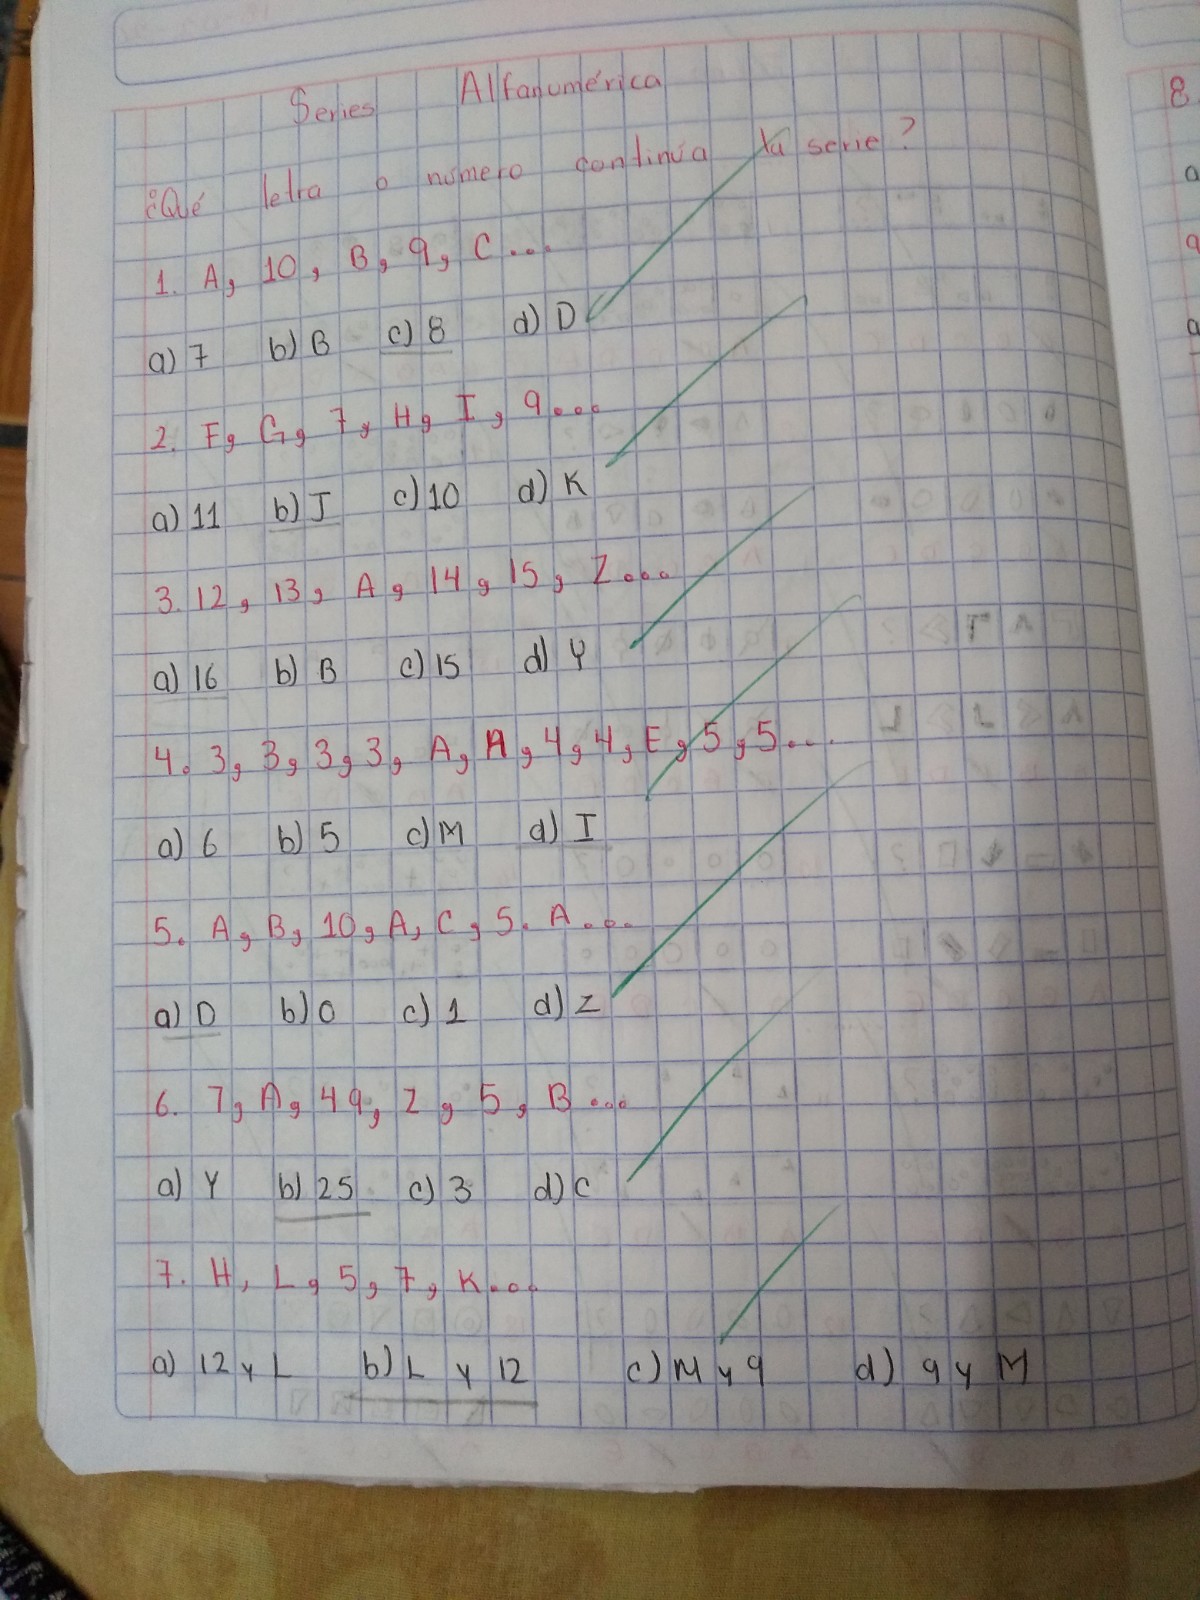 Series Alfanumérica
¿Qué letra o número continúa la serie?
1. A, 10, B, 9, C...
a) 7 b) B c) 8 d) D
2. F, G, 7, H, I, 9...
a) 11 b) J c) 10 d) K
3. 12, 13, A, 14, 15, Z...
a) 16 b) B c) 15 d) Y
4. 3, 3, 3, 3, A, A, 4, 4, E, 5, 5...
a) 6 b) 5 c) M d) I
5. A, B, 10, A, C, 5. A...
a) D b) O c) 1 d) Z
6. 7, A, 49, Z, 5, B...
a) Y b) 25 c) 3 d) C
7. H, L, 5, 7, K...
a) 12 y L b) L y 12 c) M y 9 d) 9 y M
8.
a
9
a